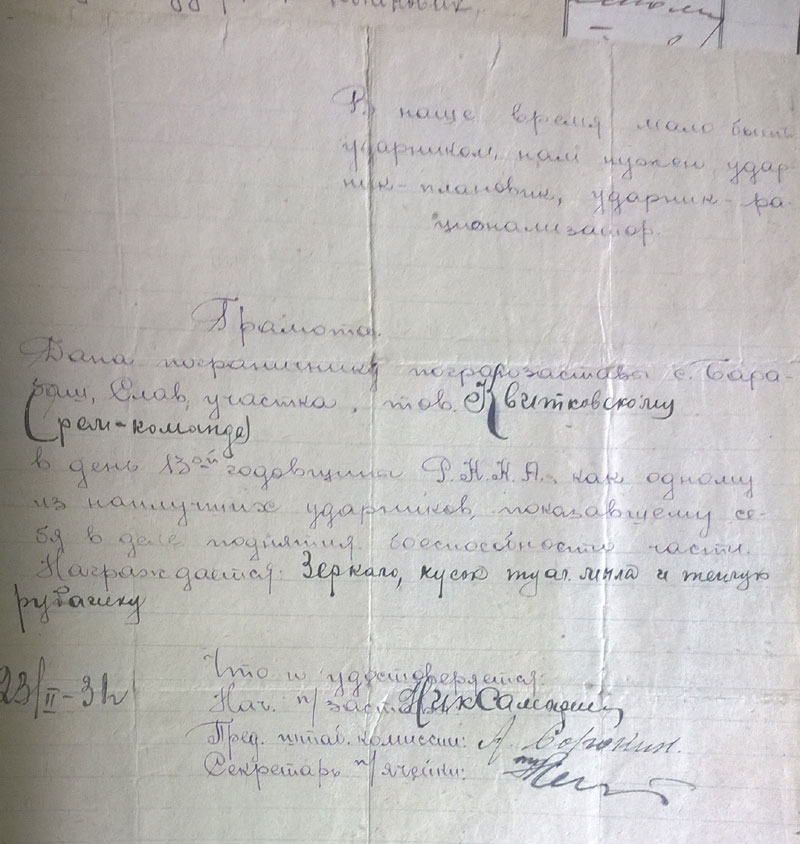 В наше время мало быть
ударником, нам нужен удар-
ник-плановик, ударник-ра-
ционализатор.
Грамота.
Дана пограничнику погранзаставы с. Бара-
баш, Слав, участка, тов. Квитковскому
(рем-команде)
в день 13ой годовщины Р.К.К.А. как одному
из наилучших ударников, показавшему се-
бя в деле поднятия боеспособности части.
Награждается: Зеркало, кусок туал. мыла и теплую
рубашку
Что и удостоверяется:
23/II-31г
Нач. п/заст.
Пред. штаб. комиссии: А. Сорокин.
Секретарь п/ячейки: